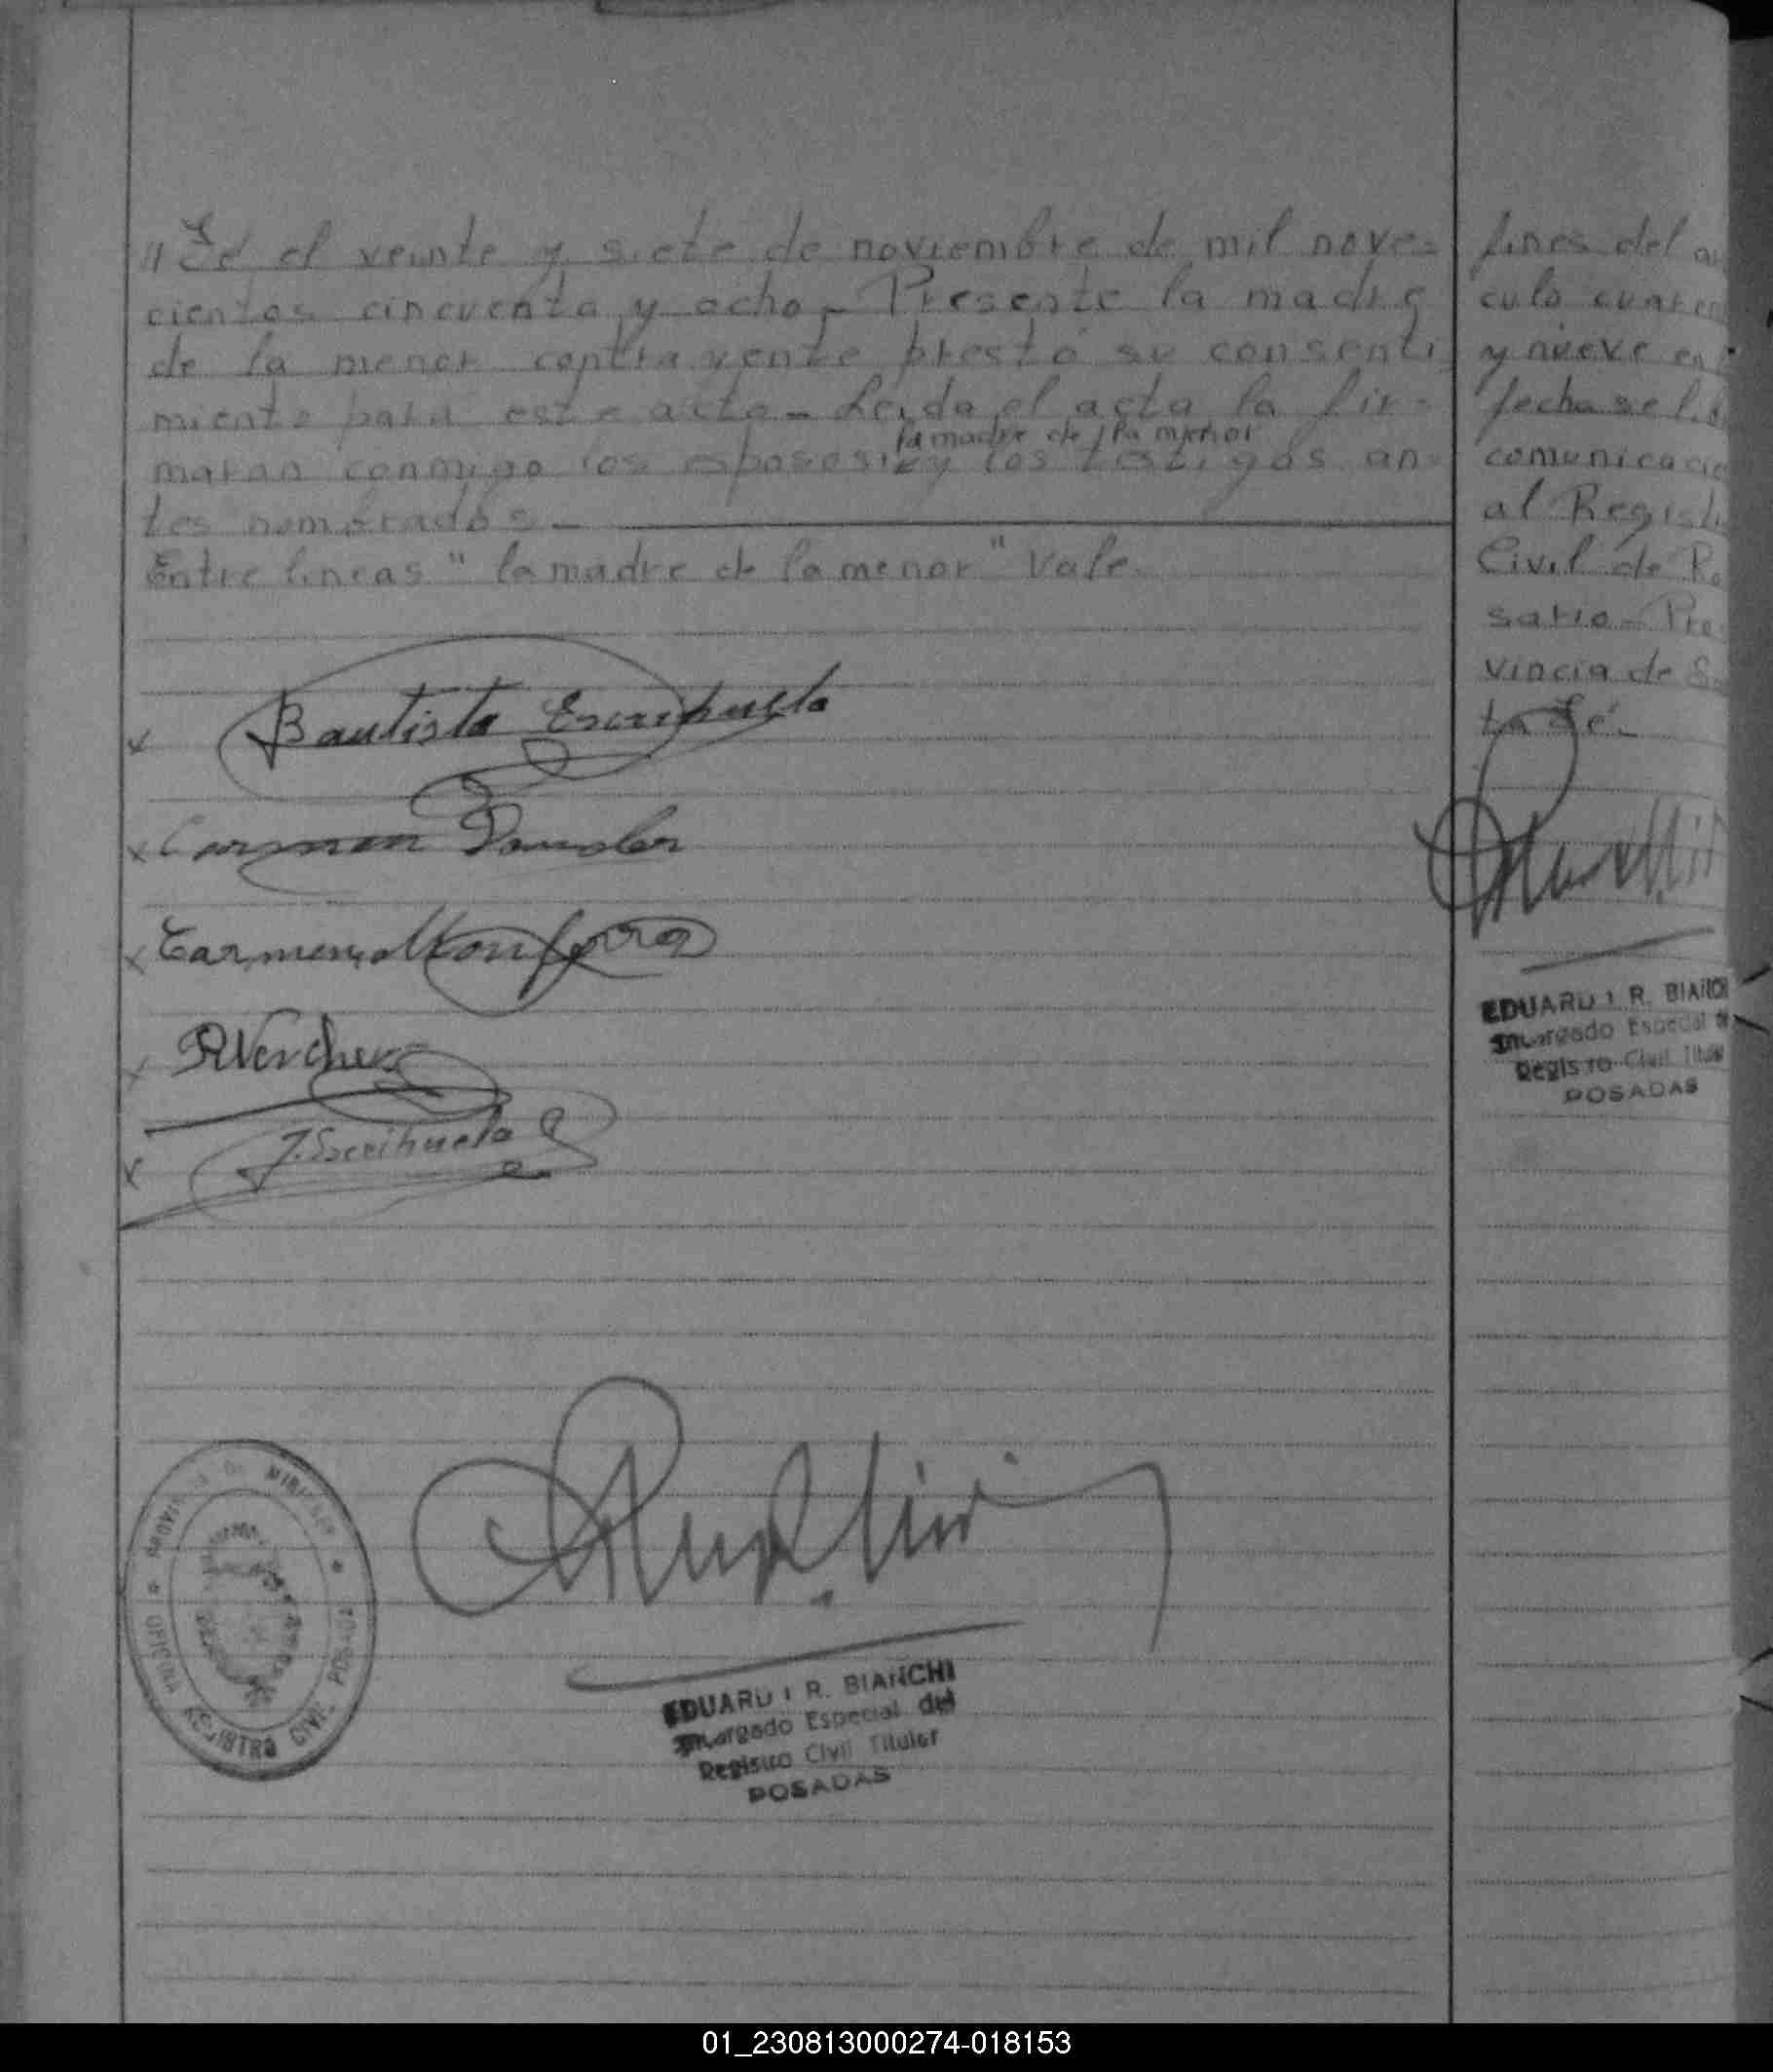 // Fé el veinte y siete de noviembre de mil nove=
cientos cincuenta y ocho - Presente la madre
de la menor contrayente prestó su consenti
miento para este acto - Leida el acta la fir-
la madre de la menor
maran conmigo los esposos y los testigos an-
tes nombrados -
Entre lineas " la madre de la menor " Vale.
Bautista Escrihuela
Carmen
Carmen Monforra
R Verchers
J. Escrihuela
PROVINCIA DE MISIONES
OFICINA REGISTRO CIVIL POSADAS
EDUARDO R. BIANCHI
Encargado Especial del
Registro Civil Titular
POSADAS
fines del ar
culo cuaren
y nueve en
fecha se l
comunicació
al Regist
Civil de Ro
sario - Pro
vincia de S
ta Fé -
EDUARDO R. BIANCHI
Encargado Especial
Registro Civil Titular
POSADAS
01_230813000274-018153